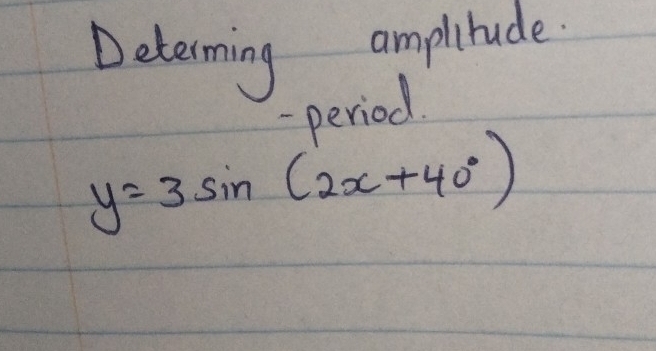 Determing amplitude.
- period.
y = 3 sin (2x + 40°)